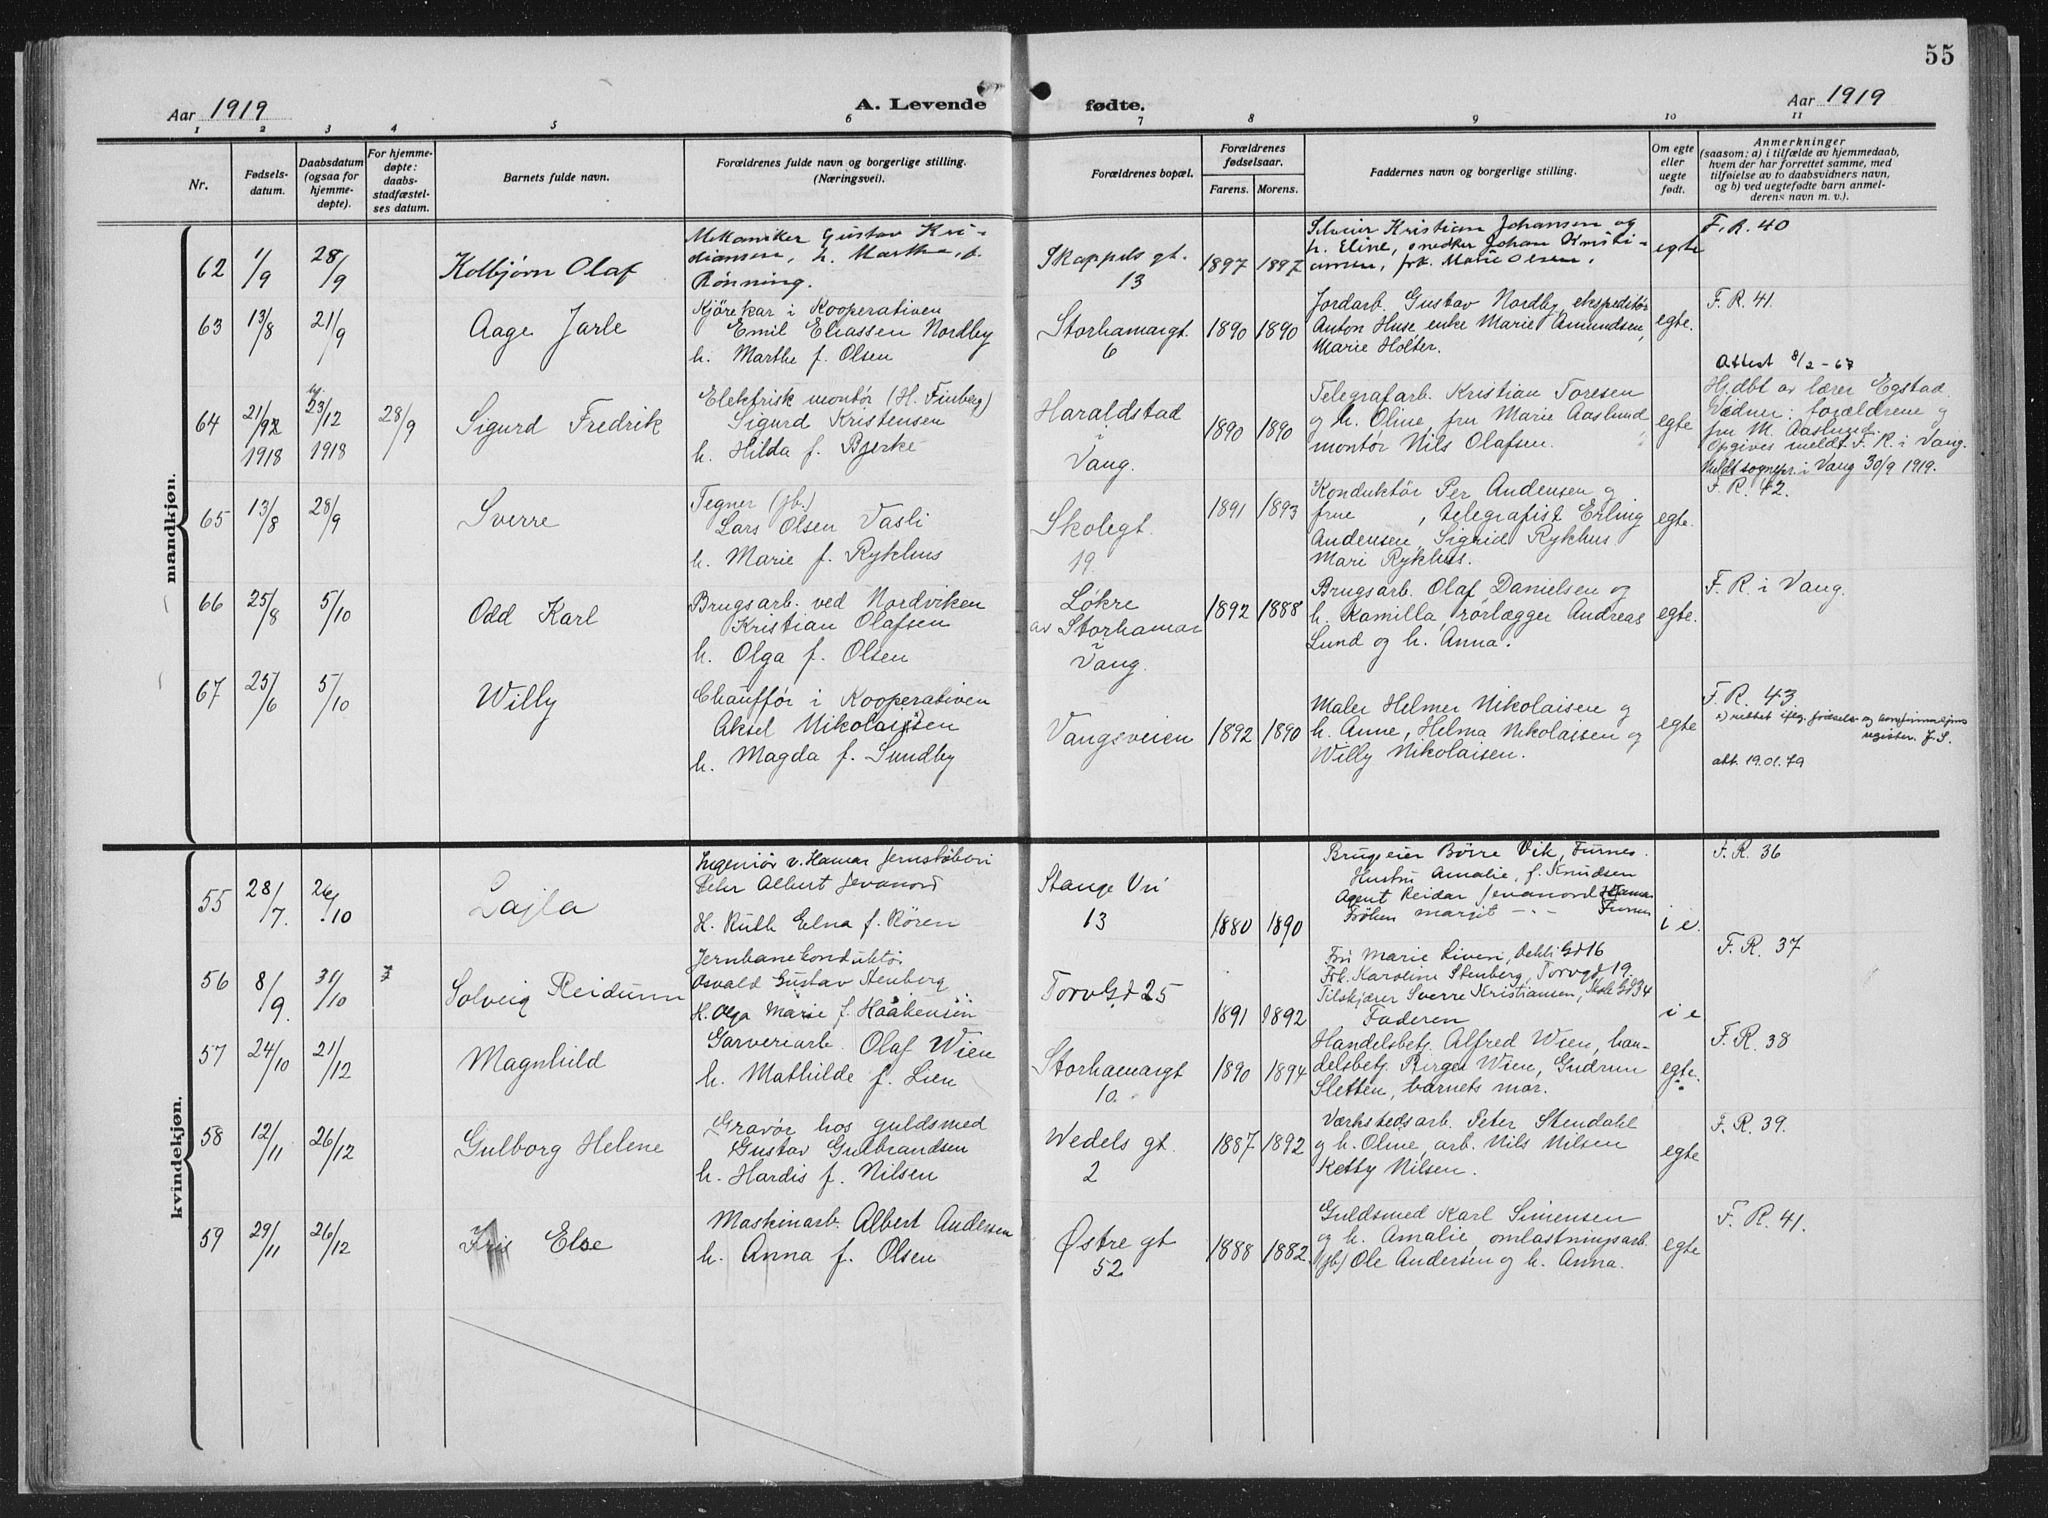 55
Aar 1919
A. Levende fødte.
Aar 1919
1 2 3 4 5 6 7 8 9 10 11
Nr.
Fødsels-
datum.
Daabsdatum
(ogsaa for
hjemme-
døpte).
For hjemme-
døpte:
daabs-
stadfæstel-
ses datum.
Barnets fulde navn.
Forældrenes fulde navn og borgerlige stilling.
(Næringsvei).
Forældrenes bopæl.
Forældrenes
fødselsaar.
Farens. Morens.
Faddernes navn og borgerlige stilling.
Om egte
eller
uegte
født.
Anmerkninger
(saasom: a) i tilfælde av hjemmedaab,
hvem der har forrettet samme, med
tilføielse av to daabsvidners navn,
og b) ved uegtefødte barn anmel-
derens navn m. v.).
mandkjøn.
62
1/9
28/9
Kolbjørn Olaf
Mekaniker Gustav Kri-
stiansen, h. Marthe, f.
Rønning.
Skappels gt.
13
1897
1897
Kristian Johansen og
h. Eline, snedker Johan Kristi-
ansen, frk. Marie Olsen.
egte
F. R. 40
63
13/8
21/9
Aage Jarle
Kjørekar i Kooperativen
Emil Eliassen Nordby
h. Marthe f. Olsen
Storhamargt.
6
1890
1890
Jordarb. Gustav Nordby, ekspeditør
Anton Huse, enke Marie Amundsen,
Marie Holter.
egte.
F. R. 41.
64
21/12
1918
hj.
23/12
1918
28/9
Sigurd Fredrik
Elektrisk montør (H. Finberg)
Sigurd Kristensen
h. Hilda f. Bjerke
Haraldstad
i
Vang.
1890
1890
Telegrafarb. Kristian Toresen
og h. Oline, fru Marie Aaslund
montør Nils Olafsen.
egte
Attest 8/2-67
Hj.dbt av lærer Egstad.
Vidner: forældrene og
fru M. Aaslund.
Opgives meldt F. R. i Vang.
Meldt sognepr. i Vang 30/9 1919.
65
13/8
28/9
Sverre
Tegner (jb.)
Lars Olsen Vasli
h. Marie f. Rykhus
Skolegt.
19.
1891
1893
Konduktør Per Andensen og
frue , telegrafist Erling
Andensen, Sigrid Rykhus
Mari Rykhus.
egte.
F. R. 42.
66
25/8
5/10
Odd Karl
Brugsarb. ved Nordviken
Kristian Olafsen
h. Olga f. Olsen
Løkre
av Storhamar
i
Vang.
1892
1888
Brugsarb. Olaf Danielsen og
h. Kamilla, rørlægger Andreas
Lund og h. Anna.
egte.
F. R. i Vang.
67
25/6
5/10
Willy
Chauffør i Kooperativen
Aksel Nikolaisen
h. Magda f. Sundby
Vangsveien
1892
1890
Maler Helmer Nikolaisen og
h. Anne, Helma Nikolaisen og
Willy Nikolaisen.
egte
F. R. 43
rettet iflg. fødsels- og konfirmasjons
register. J. S.
att. 19.01.79
kvindekjøn.
55
28/7.
26/10
Lajla
Ingeniør v. Hamar Jernstøberi
Peter Albert Jevanord
H. Ruth Elna f. Røren
Stange Vei
13
1880
1890
Brugseier Børre Vik, Furnes.
Hustru Amalie, f. Knudsen
Agent Reidar Jevanord Hamar
Frøken Margit -·- Furnes
i e.
F. R. 36
56
8/9.
31/10
Solveig Reidunn
Jernbanekonduktør
Osvald Gustav Stenberg
H. Olga Marie f. Haakensen
Torvgd 25
1891
1892
Fru Marie Riveri, Gd 16
Frk. Karoline Stenberg, Torvgd 19.
Tilskjærer Sverre Kristiansen, Gd 34
Faderen
i e
F. R. 37
57
24/10
21/12
Magnhild
Garveriarb. Olaf Wien
h. Mathilde f. Lien
Storhamargt
10.
1890
1894
Handelsbetj. Alfred Wien, han-
delsbetj. Birger Wien, Gudrun
Sletten, barnets mor.
egte.
F. R. 38
58
12/11
26/12
Gulborg Helene
Gravør hos guldsmed
Gustav Gulbrandsen
h. Hardis f. Nilsen
Wedels gt.
2
1887
1892
Værkstedsarb. Peter Stendahl
og h. Oline, arb. Nils Nilsen
Ketty Nilsen.
egte
F. R. 39.
59
29/11
26/12
Iris Else
Maskinarb. Albert Andersen
h. Anna f. Olsen
Østre gt
52
1888
1882.
Guldsmed Karl Simensen
og h. Amalie, omlastningsarb.
(jb) Ole Andersen og h. Anna.
egte
F. R. 41.